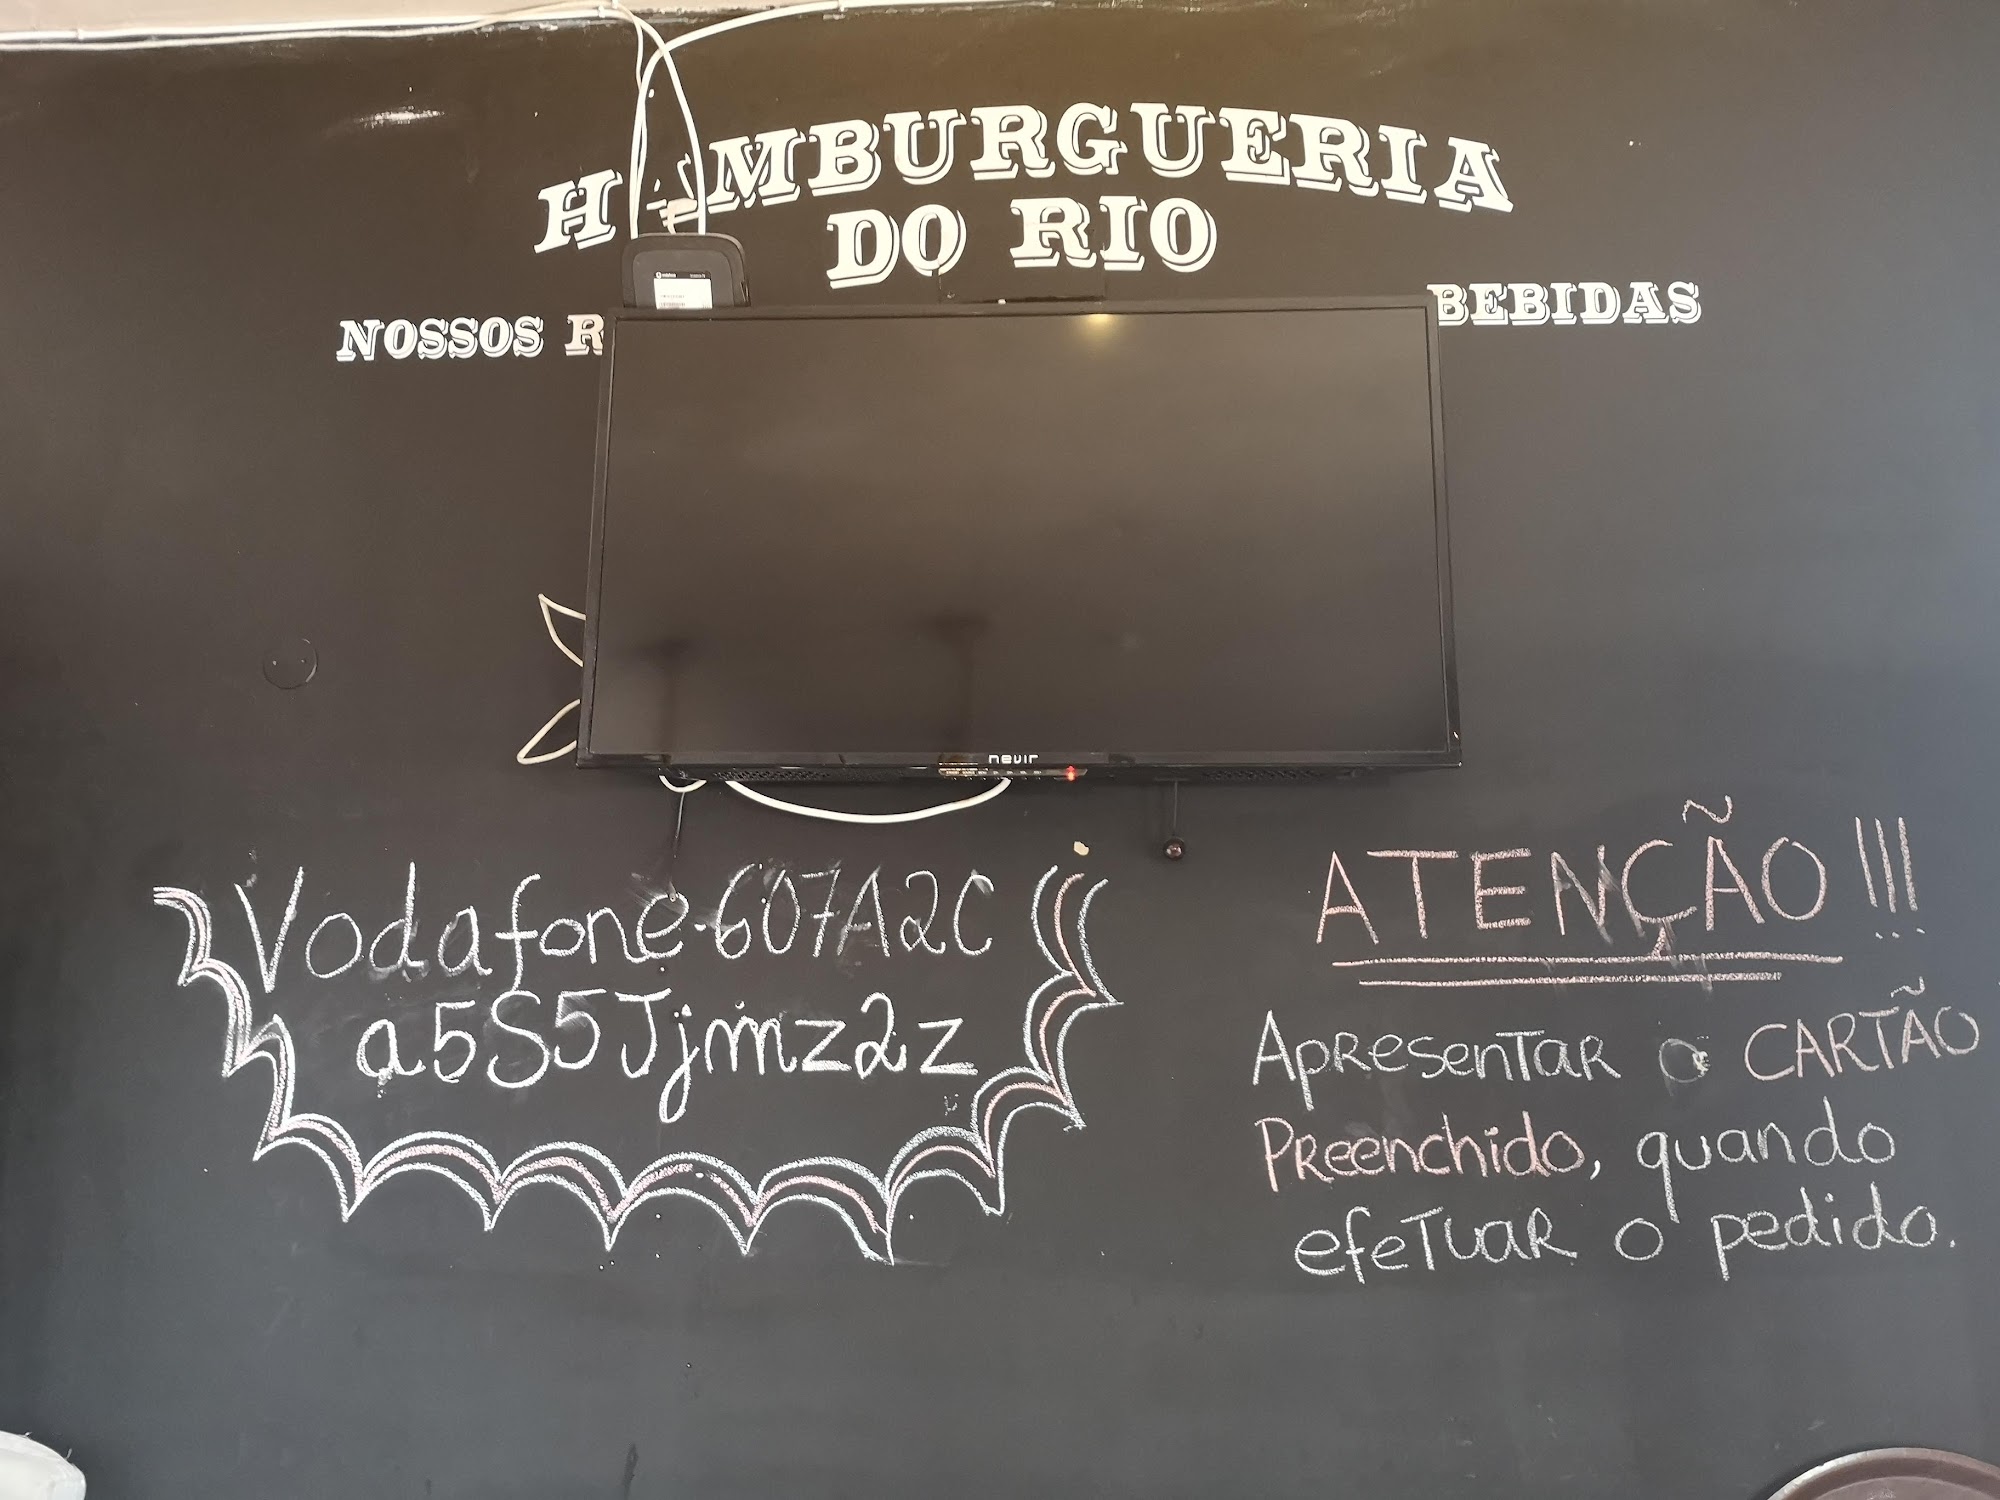 HAMBURGUERIA
DO RIO
NOSSOS
BEBIDAS
nevir
Vodafone-607A2C
a5S5Jjmz2z
ATENÇÃO !!!
Apresentar o CARTÃO
Preenchido, quando
efetuar o pedido.